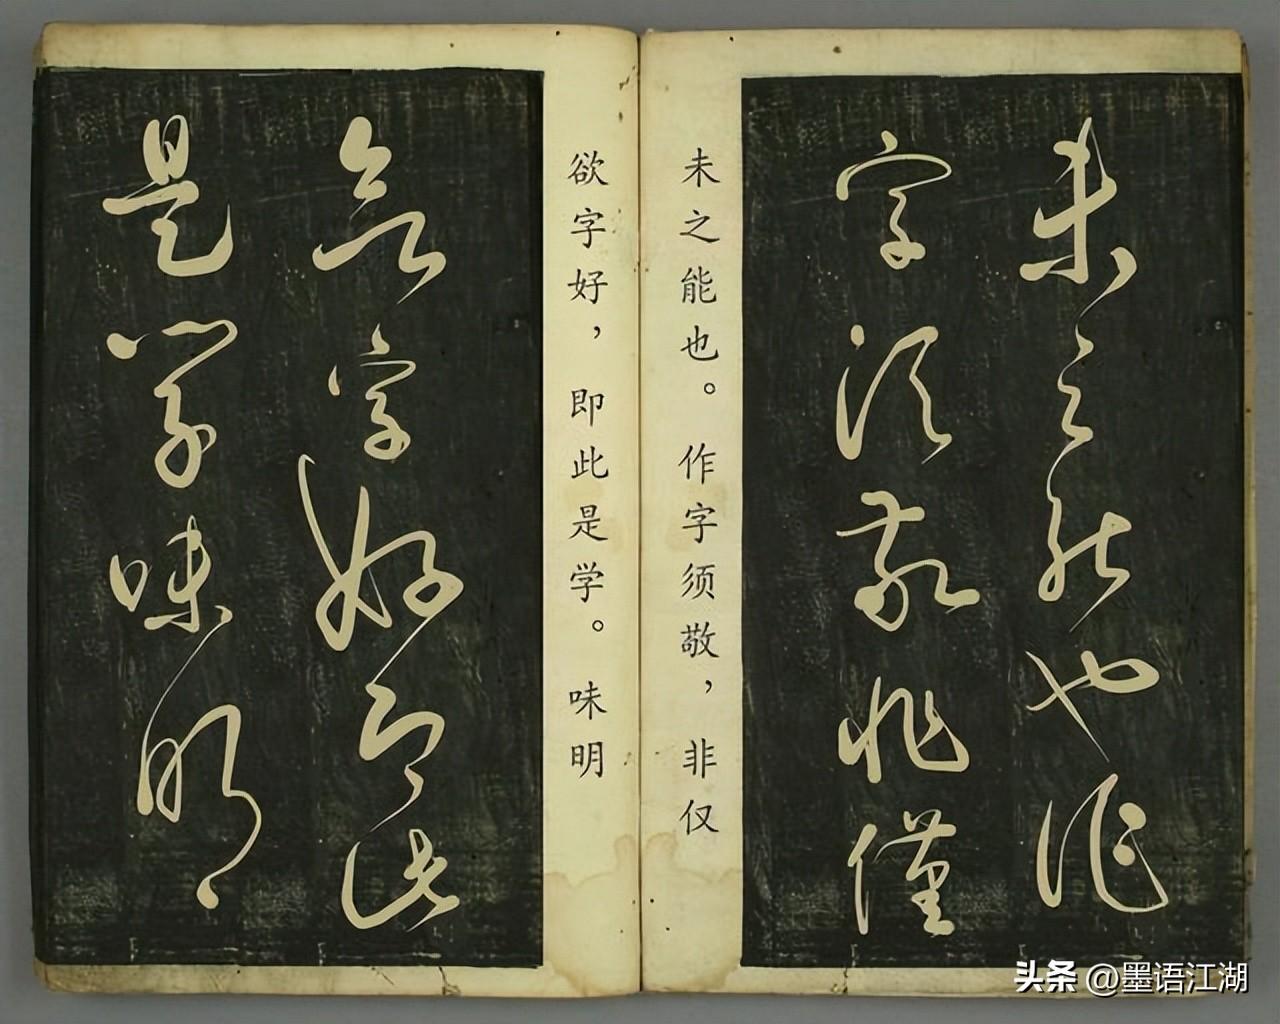 未之能也作
字须敬非僅
未之能也。作字须敬，非仅
欲字好，即此是学。味明
欲字好即此
是学味明
头条 @墨语江湖